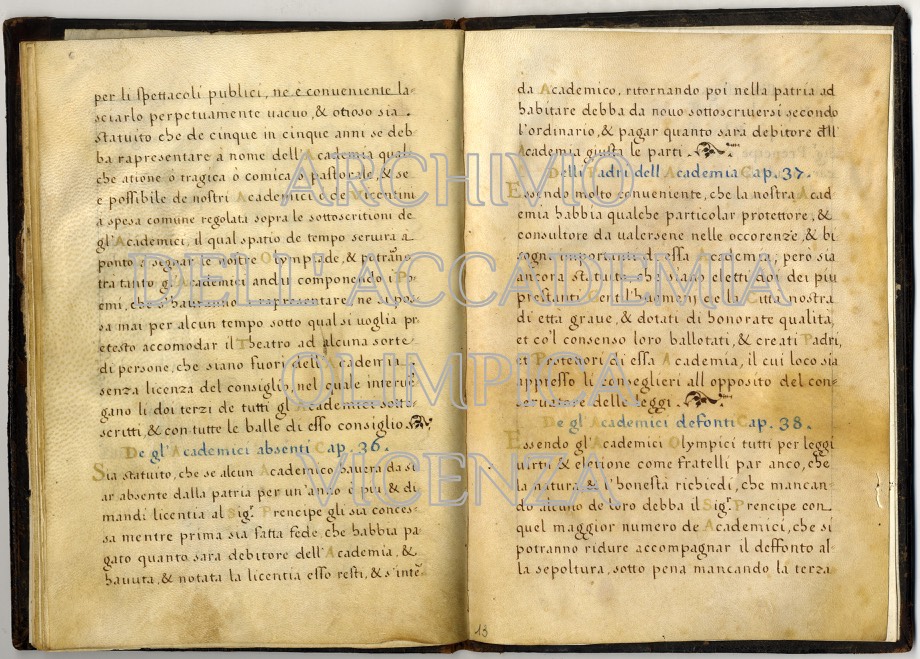 per li spettacoli publici, ne è conueniente la-
sciarlo perpetuamente uacuo, & otioso sia
statuito che de cinque in cinque anni se deb-
ba rapresentare à nome dell'Academia qual
che atione ò tragica ò comica ò pastorale, & se
è possibile de nostri Academici, e de Vicentini
à spesa comune regolata sopra le sottoscritioni de
gl'Academici, il qual spatio de tempo seruirà à
ponto à segnar le nostre Olympiade, & potranō
tra tanto gl'Academici andar componendo i Po-
emi, che s'hauranno a rapresentare, ne si pos-
sa mai per alcun tempo sotto qual si uoglia pr
etesto accomodar il Theatro ad alcuna sorte
di persone, che siano fuori dell'Academia
senza licenza del consiglio, nel quale interue-
gano li doi terzi de tutti gl'Academici sotto-
scritti, & con tutte le balle di esso consiglio.
De gl'Academici absenti Cap. 36.
Sia statuito, che se alcun Academico hauerà da st
ar absente dalla patria per un'anno è più, & di
mandi licentia al Sig.r Prencipe gli sia conces-
sa mentre prima sia fatta fede che habbia pa-
gato quanto sarà debitore dell'Academia, &
hauuta, & notata la licentia esso resti, & s'intē-
da Academico, ritornando poi nella patria ad
habitare debba da nouo sottoscriuersi secondo
l'ordinario, & pagar quanto sarà debitore dell'
Academia giusta le parti.
Delli Padri dell'Academia Cap. 37.
Essendo molto conueniente, che la nostra Acad
emia habbia qualche particolar protettore, &
consultore da ualersene nelle occorenze, & bi
sogni importanti d'essa Academia, però sia
ancora statuito che siano eletti doi dei più
prestanti Gentil'huomeni de la Città nostra
di età graue, & dotati di honorate qualità,
et co'l consenso loro ballotati, & creati Padri,
et Protetori di essa Academia, il cui loco sia
appresso li conseglieri all'opposito del con-
seruatore delle leggi.
De gl'Academici defonti Cap. 38.
Essendo gl'Academici Olympici tutti per leggi
uirtù & eletione come fratelli par anco, che
la natura, & l'honestà richiedi, che mancan-
do alcuno de loro debba il Sig.r Prencipe con
quel maggior numero de Academici, che si
potranno ridure accompagnar il deffonto al
la sepoltura, sotto pena mancando la terza
13
ARCHIVIO
DELL'ACCADEMIA
OLIMPICA
VICENZA